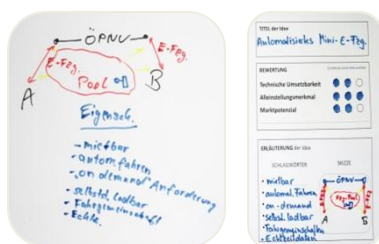 ÖPNV
E-Fzg.
E-Fzg.
Pool
A
B
Eigensch.
- mietbar
- autom. fahren
- on demand Anforderung
- selbstd. ladbar
- Fahrgemeinschaft
TITEL der Idee
Automatisiertes Mini-E-Fzg.
BEWERTUNG
Technische Umsetzbarkeit
Alleinstellungsmerkmal
Marktpotenzial
ERLÄUTERUNG der Idee
SCHLAGWÖRTER
SKIZZE
• mietbar
• automat. fahren
• on-demand
• selbst. ladbar
• Fahrgemeinschaften
• Echtzeitdaten
ÖPNV
A
B